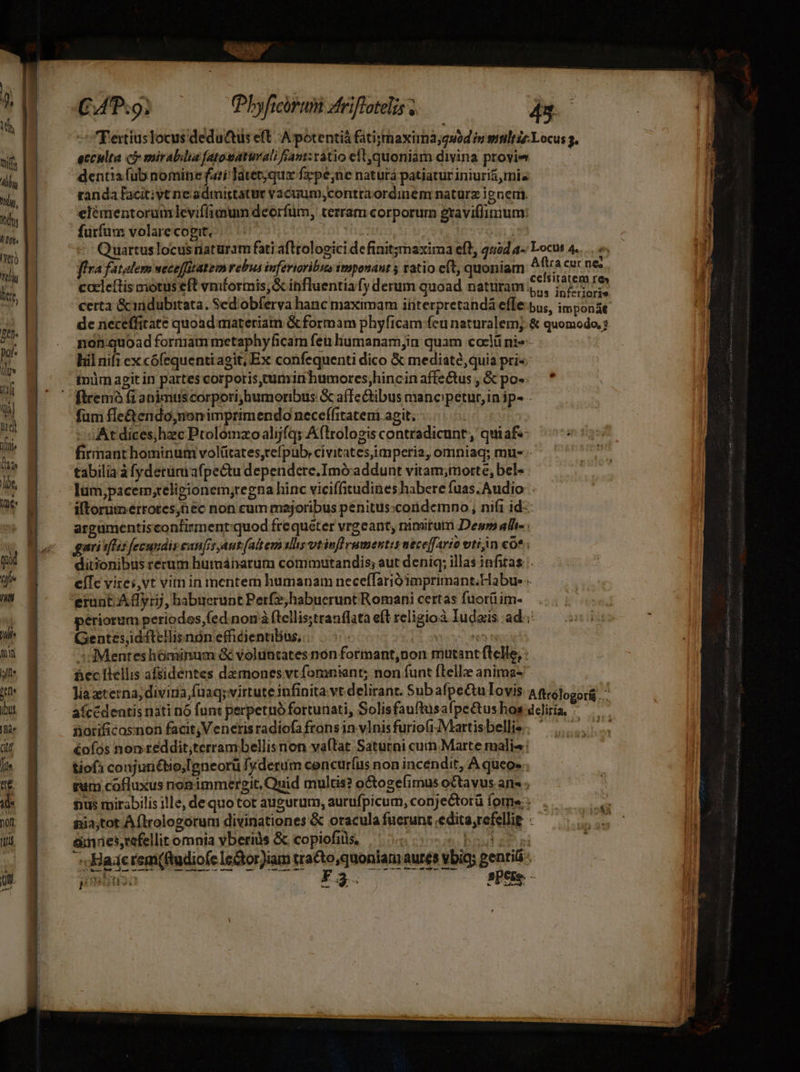 CAP.9. Physicorum Aristotelis. 45
Tertius locus deductus est A potentiâ fati; maxima, quòd in multis Locus 3.
occulta & mirabilia fato naturali fiant: ratio est, quoniam divina provi-
dentia sub nomine fati latet, quæ sæpe, ne natura patiatur iniuriã, mi-
randa facit; vt ne admittatur vacuum, contra ordinem naturæ ignem.
elementorum levissimum deorsum, terram corporum gravissimum
sursum volare cogit.
Quartus locus naturam fati astrologici definit; maxima est, quòd a- Locus 4.
stra fatalem necessitatem rebus inferioribus imponant; ratio est, quoniam Astra cur ne-
cœlestis motus est vniformis, & influentia syderum quoad naturam cessitatem re-
certa & indubitata. Sed observa hanc maximam interpretandã esse bus inferiori-
bus, imponãt
de necessitate quoad materiam & formam physicam seu naturalem, & quomodo?
non quoad formam metaphysicam seu humanam, in quam cœlũ ni-
hil nisi ex cõsequenti agit; Ex consequenti dico & mediatè, quia pri-
mùm agit in partes corporis, tum in humores, hinc in affectus, & po-
stremò si animus corpori, humoribus & affectibus mancipetur, in ip-
sum flectendo, non imprimendo necessitatem agit.
At dices, hæc Ptolomæo alijsq; Astrologis contradicunt, qui as-
firmant hominum volũtates, respub. civitates, imperia, omniaq; mu-
tabilia à syderum aspectu dependere. Imò addunt vitam, mortẽ, bel-
lum, pacem, religionem, regna hinc vicissitudines habere suas. Audio
istorum errores, nec non cum majoribus penitus condemno, nisi id
argumentis confirment quod frequẽter vrgeant, nimirum Deum alli-
gari istis secundis causis, aut saltem illis vt instrumentis necessariò vti, in cõ-
ditionibus rerum humanarum commutandis; aut deniq; illas insitas
esse vires, vt vim in mentem humanam necessariò imprimant. Habu-
erunt Assyrij, habuerunt Persæ, habuerunt Romani certas suorũ im-
periorum periodos, sed non à stellis; translata est religio à Iudæis ad
Gentes, id stellis non efficientibus.
Mentes hominum & voluntates non formant, non mutant stellæ,
nec stellis assidentes dæmones vt somniant; non sunt stellæ anima-
lia æterna, divina, suaq; virtute infinita vt delirant. Sub aspectu Iovis Astrologorũ
ascẽdentis nati nõ sunt perpetuò fortunati, Solis faustus aspectus hos deliria.
norificos non facit, Veneris radiosa frons in vlnis furiosi Martis belli-
cosos non reddit, terram bellis non vastat Saturni cum Marte mali-
tiosa conjunctio, Igneorũ syderum concursus non incendit, Aqueo-
rum cõfluxus non immergit. Quid multis? octogesimus octavus an-
nus mirabilis ille, de quo tot augurum, auruspicum, conjectorũ som-
nia, tot Astrologorum divinationes & oracula fuerunt edita, refellit
omnes, refellit omnia vberiùs & copiosiùs.
Hanc rem (studiose lector) iam tracto, quoniam aures vbiq; gentiũ
F 3